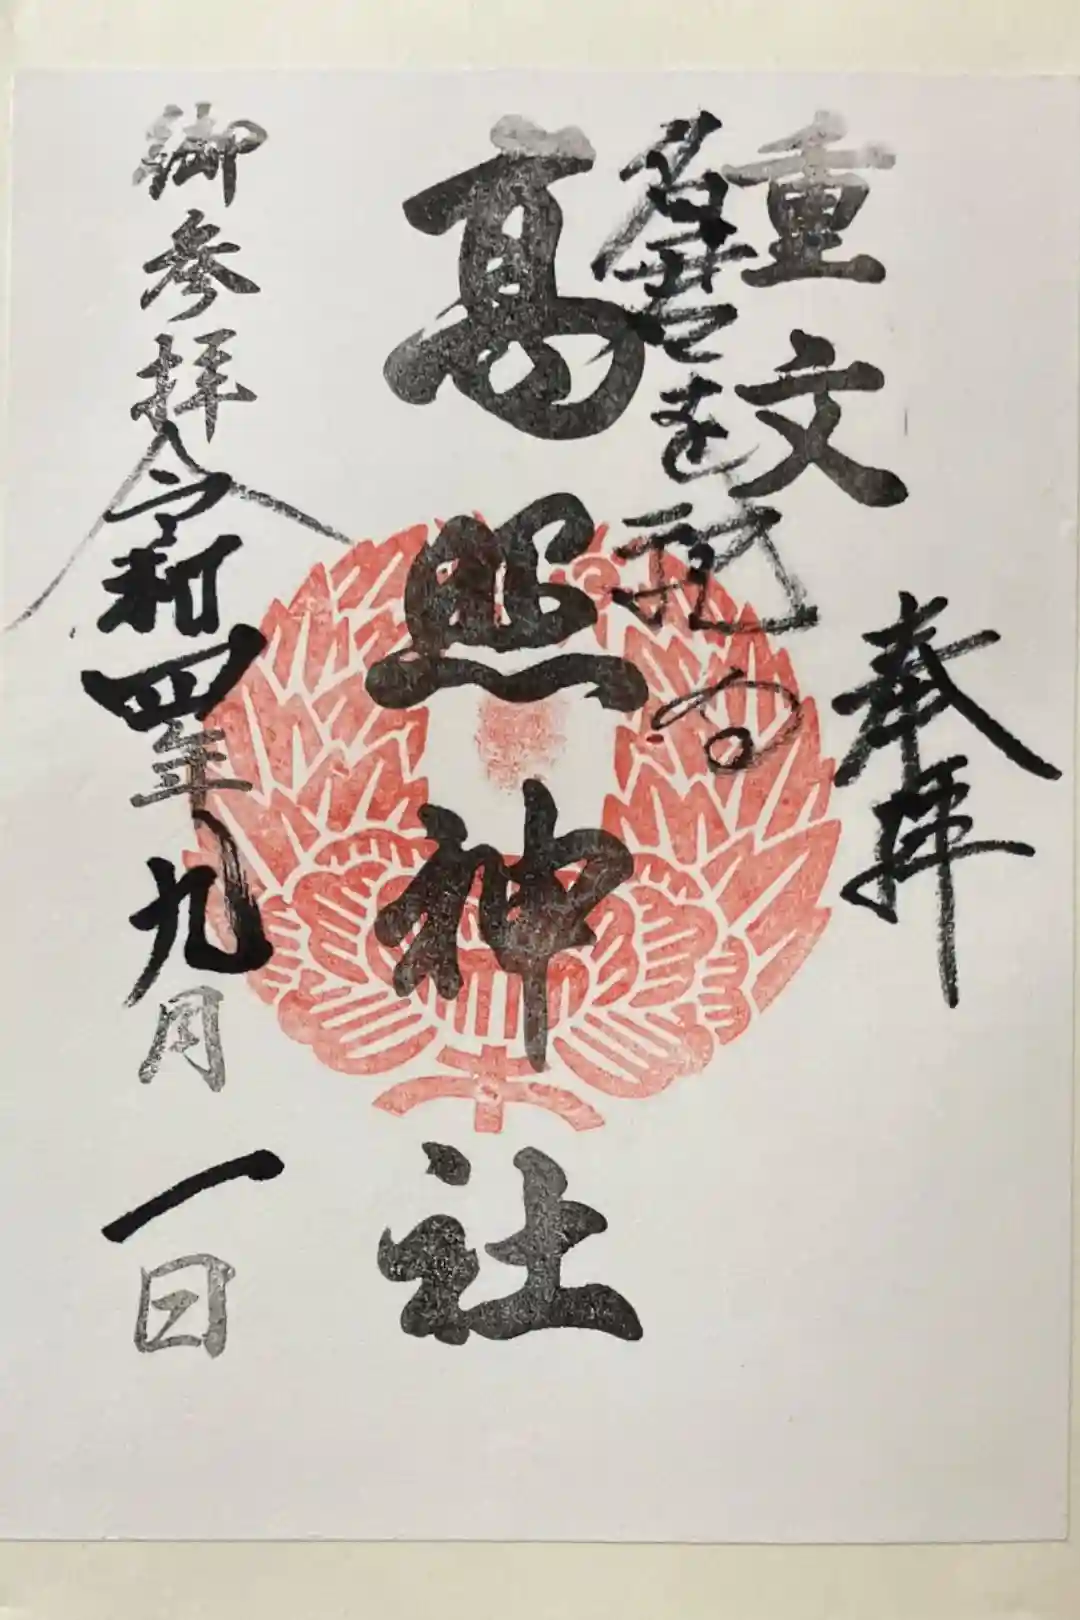 重文
奉拝
名書を記する
高照神社
御参拝
令和四年九月一日